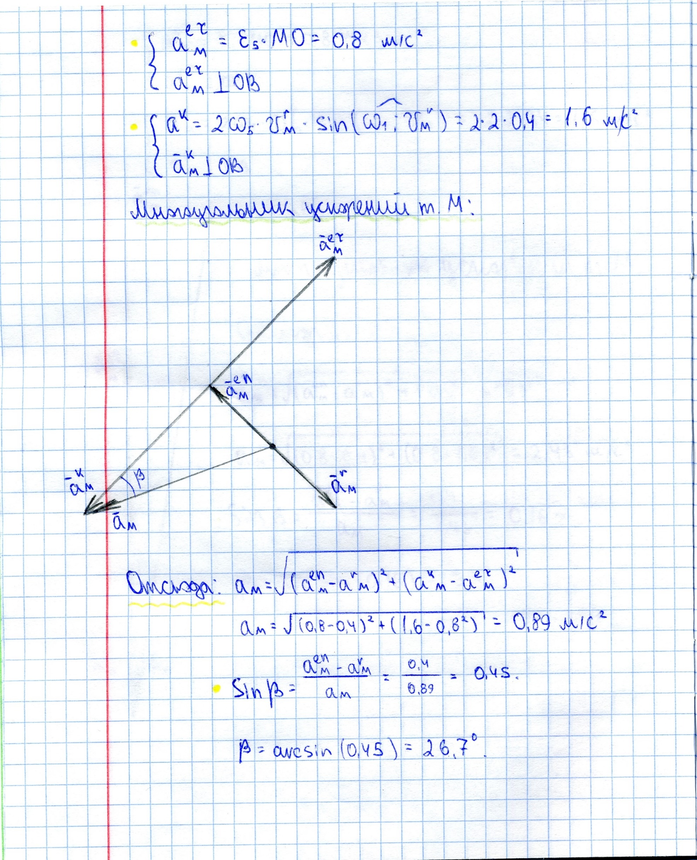 a_M^{eτ} = ε₅·MO = 0,8 м/с²
ā_M^{eτ} ⊥ OB
a^к = 2ω₅·υ_M^r · sin(ω₁; υ_M^r) = 2·2·0,4 = 1,6 м/с²
ā_M^к ⊥ OB
Многоугольник ускорений т. М:
ā_M^{eτ}
ā_M^{en}
ā_M^к
β
ā_M^r
ā_M
Отсюда: a_M = √((a_M^{en} - a_M^r)² + (a_M^к - a_M^{eτ})²)
a_M = √((0,8-0,4)² + (1,6-0,8²)) = 0,89 м/с²
Sin β = (a_M^{en} - a_M^r)/a_M = 0,4/0,89 = 0,45.
β = arcsin (0,45) = 26,7°.